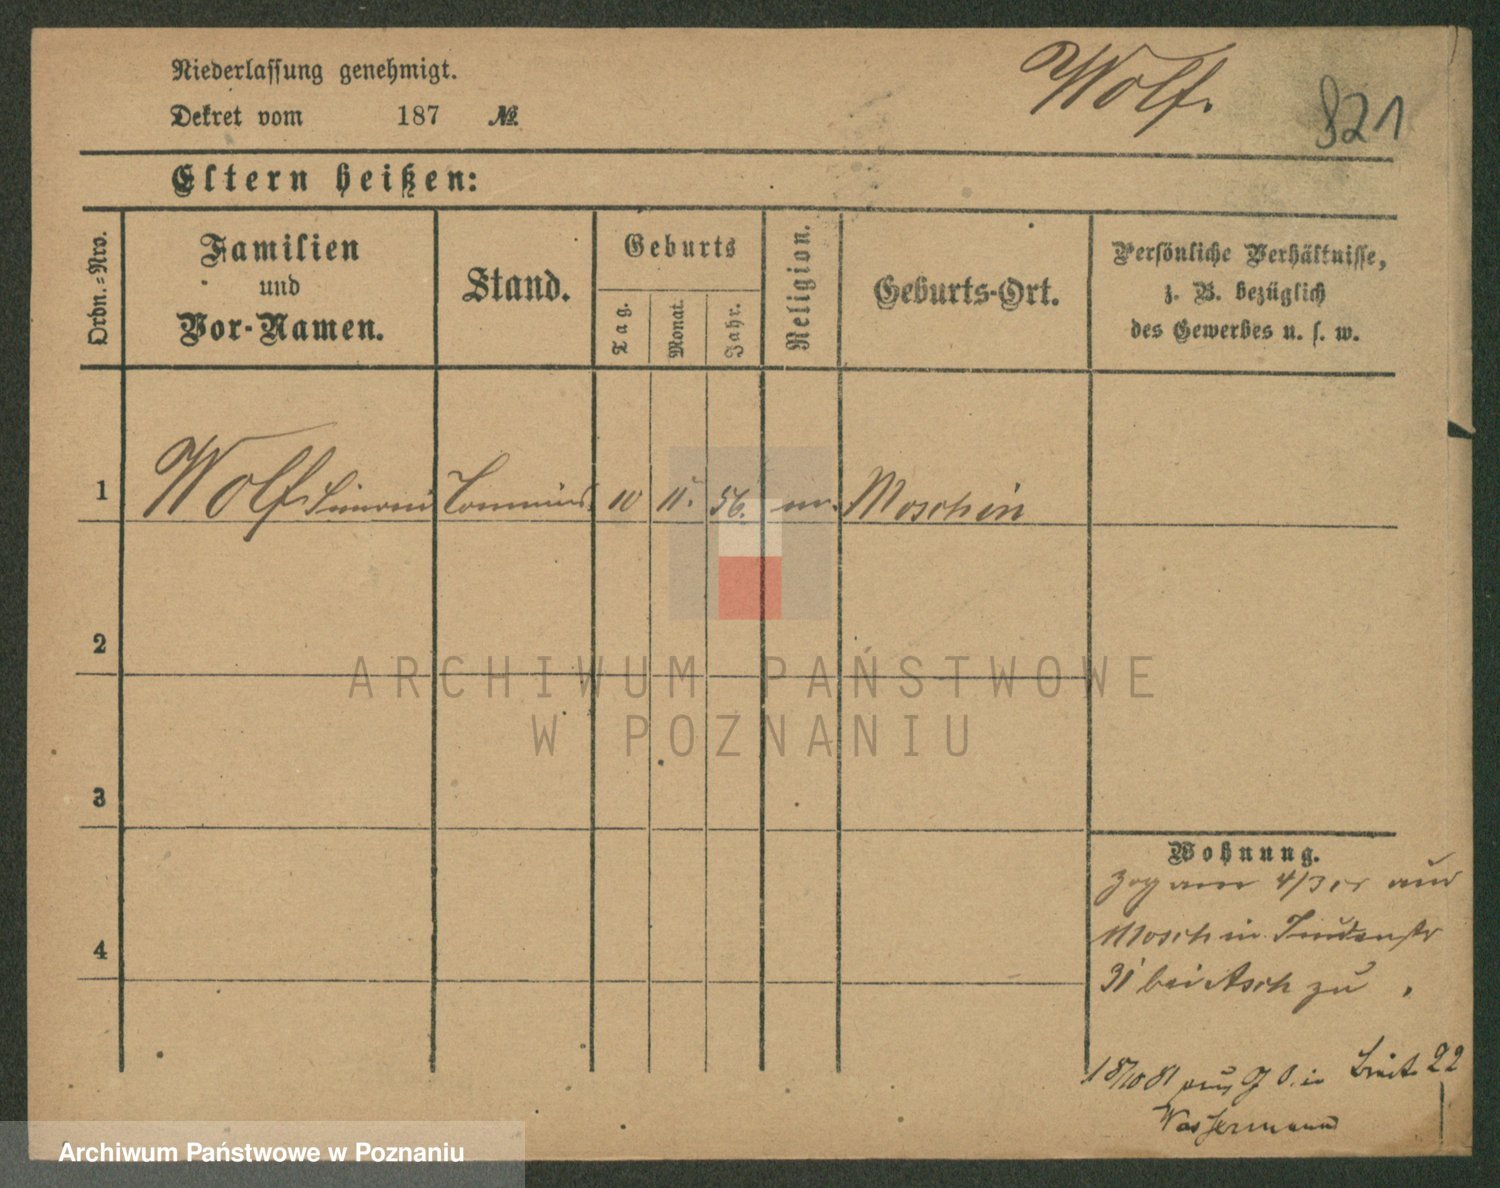 Niederlassung genehmigt.
Dekret vom 187 №
Wolf.
821
Eltern heißen:
Ordn.-Nro.
Familien
und
Vor-Namen.
Stand.
Geburts
Tag.
Monat.
Jahr.
Religion.
Geburts-Ort.
Persönliche Verhältnisse,
z. B. bezüglich
des Gewerbes u. s. w.
1 Wolf Simon Commis 10 11. 56. m. Moschin
2
3
4
Wohnung.
zog am 4/3 aus
Moschin Judenstr
31 bei Asch zu.
18/10 81 Breit. 22
Wassermann
ARCHIWUM PAŃSTWOWE
W POZNANIU
Archiwum Państwowe w Poznaniu